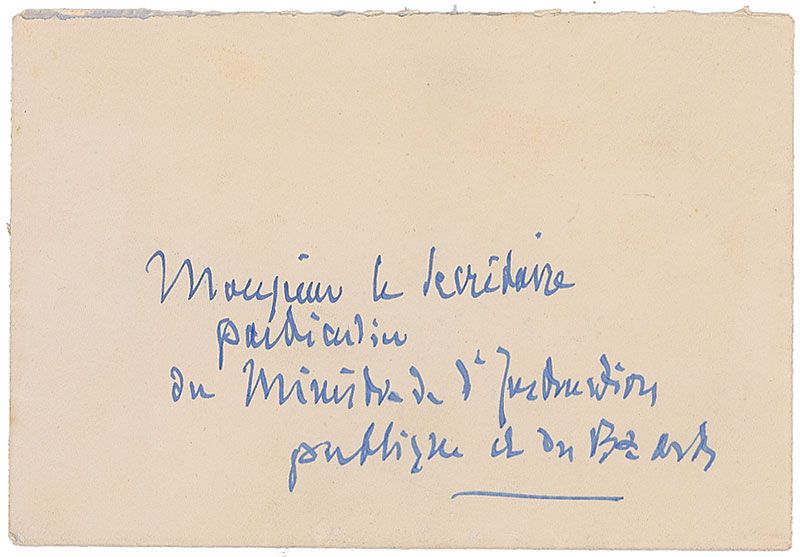 Monsieur le Secrétaire
particulier
du Ministre de l'Instruction
publique et des Bx arts